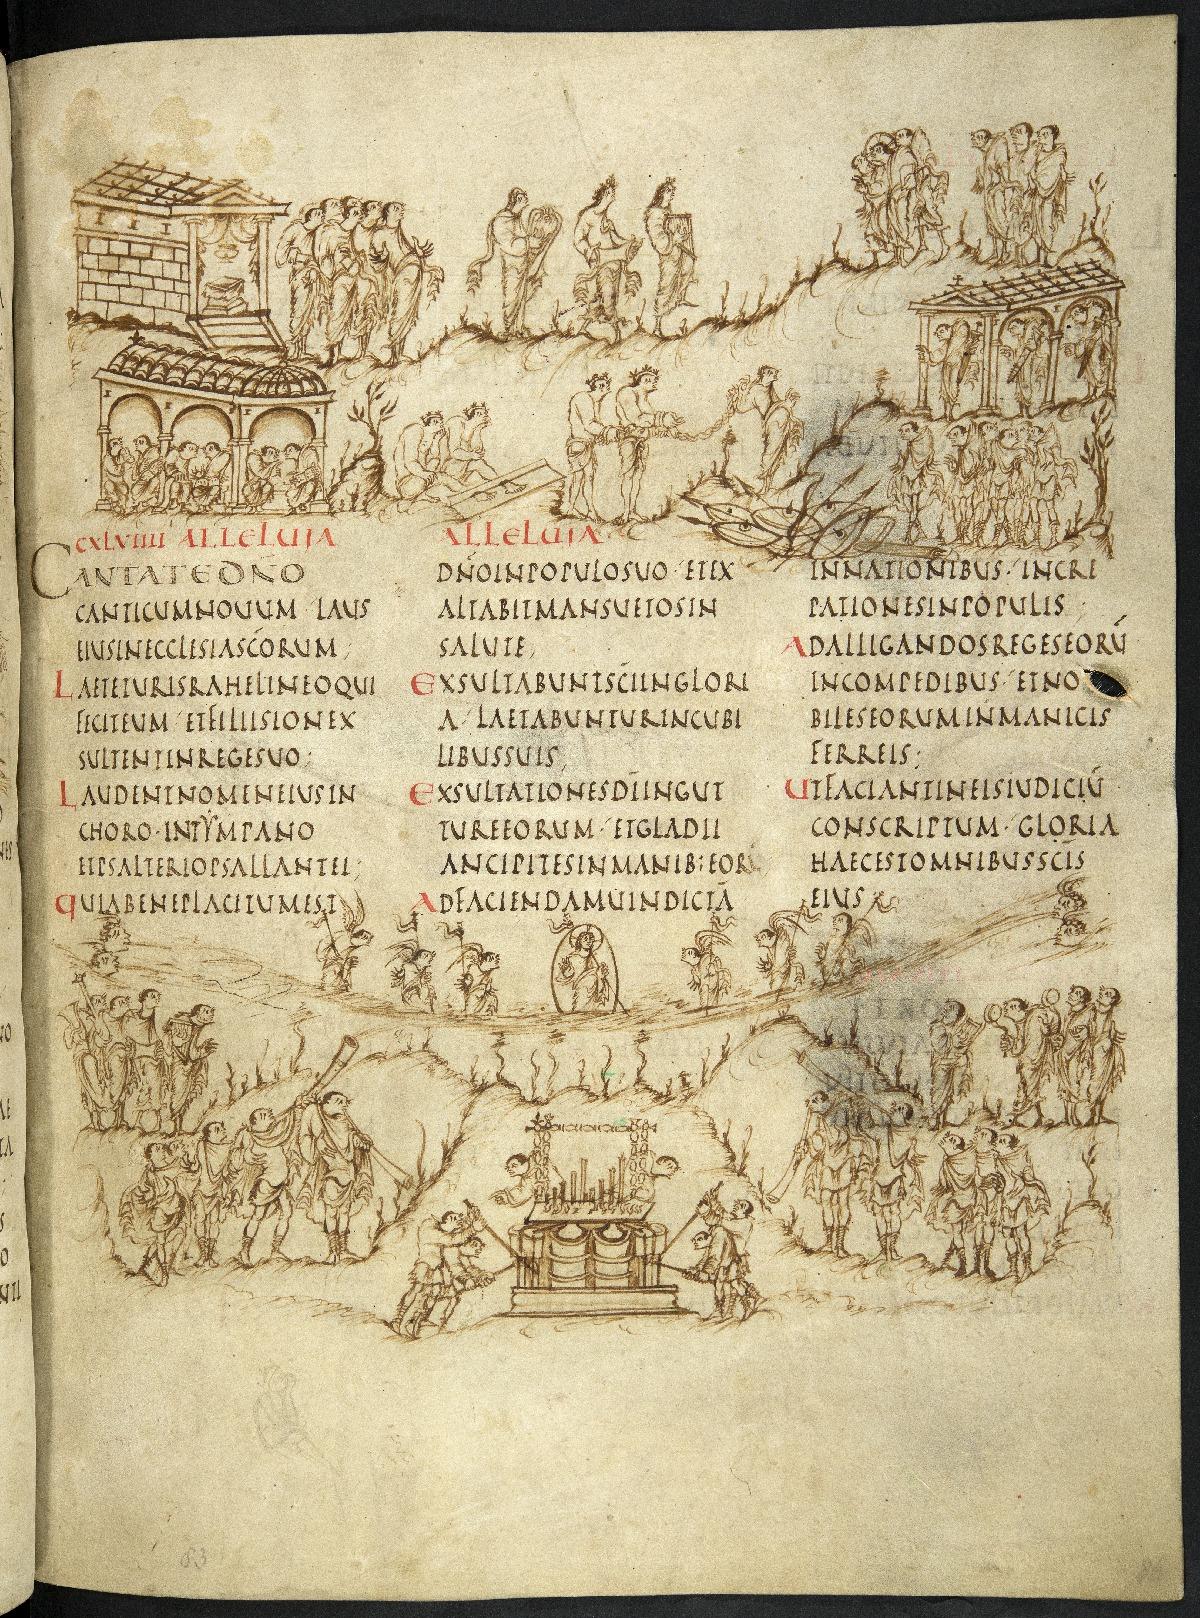 CXLVIIII ALLELUIA
CANTATE DÑO
CANTICUM NOUUM LAUS
EIUS IN ECCLESIA SCŌRUM;
LAETETUR ISRAHEL IN EO QUI
FECIT EUM ET FILII SION EX
SULTENT IN REGE SUO;
LAUDENT NOMEN EIUS IN
CHORO · IN TYMPANO
ET PSALTERIO PSALLANT EI;
QUIA BENEPLACITUM EST
ALLELUIA
DÑO IN POPULO SUO ET EX
ALTABIT MANSUETOS IN
SALUTE;
EXSULTABUNT SC̄I IN GLORI
A LAETABUNTUR IN CUBI
LIBUS SUIS;
EXSULTATIONES DĪ IN GUT
TURE EORUM ET GLADII
ANCIPITES IN MANIB: EOR
AD FACIENDAM UINDICTĀ
IN NATIONIBUS · INCRE
PATIONES IN POPULIS;
AD ALLIGANDOS REGES EORŪ
IN COMPEDIBUS · ET NO
BILES EORUM IN MANICIS
FERREIS;
UT FACIANT IN EIS IUDICIŪ
CONSCRIPTUM · GLORIA
HAEC EST OMNIBUS SC̄IS
EIUS
83